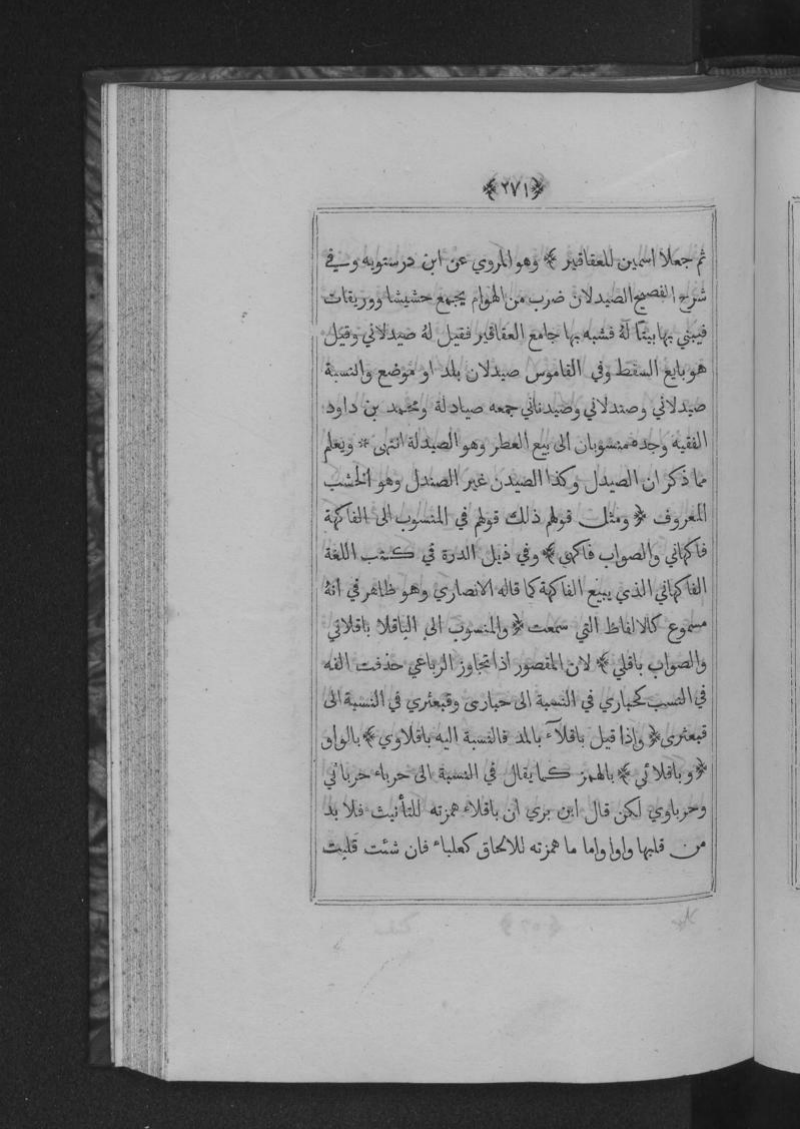 ﴿٢٧١﴾
ثم جعلا اسمين للعقاقير ﴾ وهو المروي عن ابن درستويه وفي
شرح الفصيح الصيدلان ضرب من الهوام يجمع حشيشا ووريقات
فيبني بها بيتًا لهُ فشبه بها جامع العقاقير فقيل لهُ صيدلاني وقيل
هو بايع السقط وفي القاموس صيدلان بلد او موضع والنسبة
صيدلاني وصندلاني وصيدناني جمعه صيادلة ومحمد بن داود
الفقيه وجده منسوبان الى بيع العطر وهو الصيدلة انتهى * ويعلم
مما ذكر ان الصيدل وكذا الصيدن غير الصندل وهو الخشب
المعروف ﴿ ومثل قولهم ذلك قولهم في المنسوب الى الفاكهة
فاكهاني والصواب فاكهي ﴾ وفي ذيل الدرة في كتب اللغة
الفاكهاني الذي يبيع الفاكهة كما قاله الانصاري وهو ظاهر في انهُ
مسموع كالالفاظ التي سمعت ﴿ والمنسوب الى الباقلا باقلاني
والصواب باقلي ﴾ لان المقصور اذا تجاوز الرباعي حذفت الفه
في النسب كحباري في النسبة الى حبارى وقبعثري في النسبة الى
قبعثرى ﴿ واذا قيل باقلآء بالمد فالنسبة اليه باقلاوي ﴾ بالواو
﴿ وباقلائي ﴾ بالهمز كما يقال في النسبة الى حرباء حربائي
وحرباوي لكن قال ابن بري ان باقلاء همزته للتأنيث فلا بد
من قلبها واوا واما ما همزته للالحاق كعلباء فان شئت قلبت